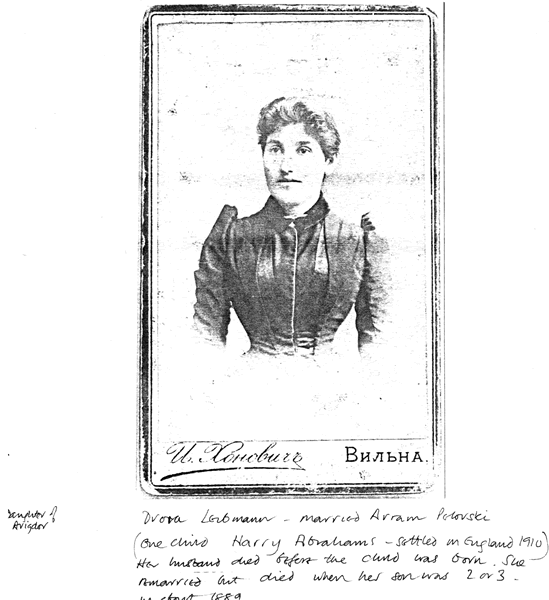 И. Хоновичъ ВИЛЬНА.
Daughter of
Avigdor
Dvora Leibmann - married Avram Polovski
(one child Harry Abrahams - settled in England 1910)
Her husband died before the child was born. She
remarried but died when her son was 2 or 3.
in about 1889